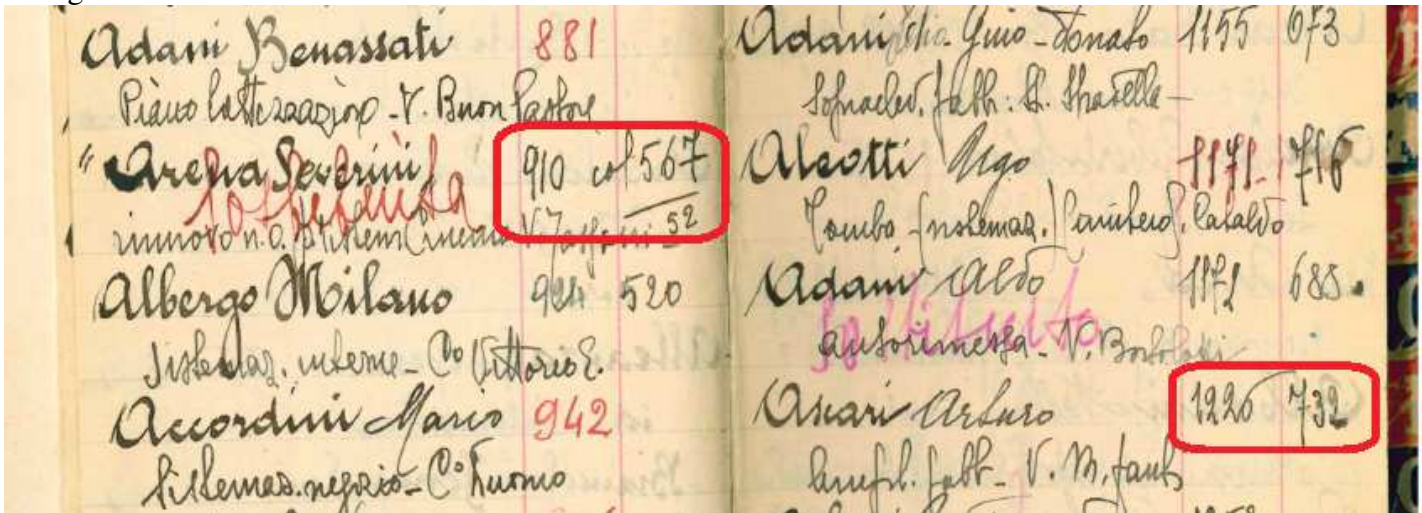 Adani Benassati 881
Piano lottizzazione - V. Buon Pastore
" Arena Severini 910 col 567
sospensa
rinnovo n.o. 52
Albergo Milano 924 520
Sistemaz. interne - Cº Vittorio E.
Accordini Mario 942
Sistemaz. negozio - Cº Duomo
Adani Gino - Donato 1155 673
Sopraelev. fabb. S. Stradella -
Aleotti Ugo 1171 - 716
Tomba - (sistemaz.) Cimitero S. Cataldo
Adani Aldo 1172 688.
Sostituito
autorimessa - V. Bortolotti
Ascari Arturo 1226 732
Ampl. fabb - V. M. Santo